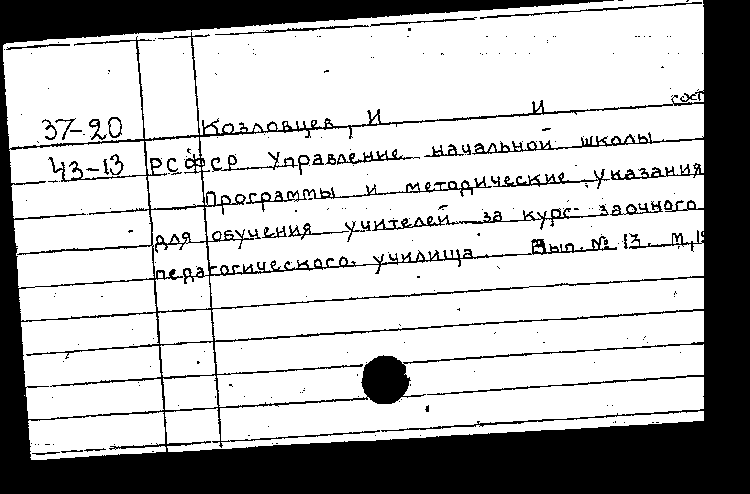 37-20 Козловцев, И И сост
43-13 РСФСР Управление начальной школы
Программы и методические указания
для обучения учителей за курс заочного
педагогического училища. Вып. № 13. М,